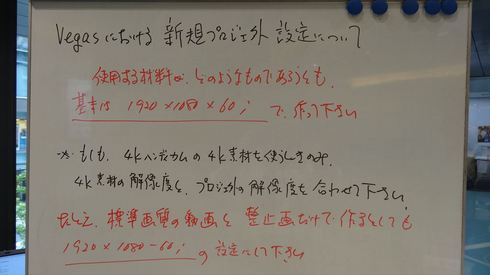 Vegasにおける 新規プロジェクト 設定について
使用する材料が、どのようなものであろうとも、
基本は 1920×1080×60i で 作って下さい
※ もしも、4kハンディカムの4k素材を使うときのみ、
4k素材の解像度と、プロジェクトの解像度を合わせて下さい。
たとえ、標準画質の動画と 静止画だけで 作るとしても
1920×1080-60i の 設定にして下さい